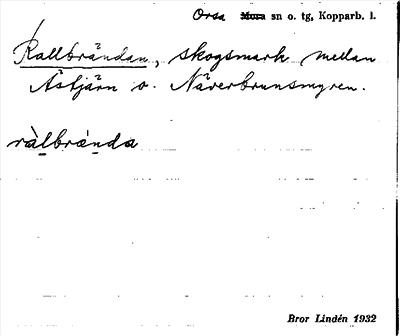 Orsa Mora sn o. tg, Kopparb. l.
Rallbrändan, skogsmark mellan
Åstjärn o. Näverbrunsmyren.
ràlbrǻnda
Bror Lindén 1932